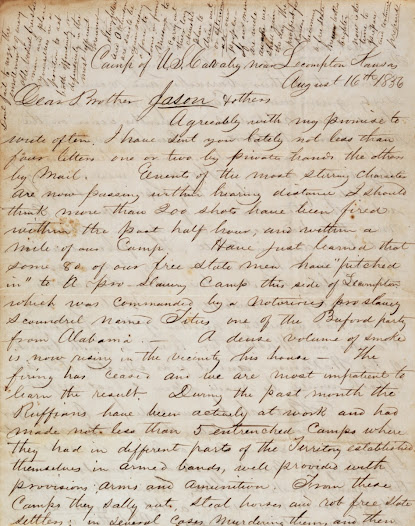 Camp of U.S. Cavalry, near Lecompton Kansas
August 16th 1856
Dear Brother Jason & others
Agreeably with my promise to
write often, I have sent you lately not less than
four letters one or two by private hands the others
by Mail. Events of the most stirring character
are now passing within hearing distance I should
think more than 200 shots have been fired
within the past half hour; and within a
mile of our Camp. Have just learned that
some 80 of our free State men have "pitched
in" to a pro-Slavery Camp this side of Lecompton
which was commanded by a notorious pro slavery
Scoundrel named Titus one of the Buford party
from Alabama. — A dense volume of smoke
is now rising in the vicinity his house — The
firing has ceased and we are most impatient to
learn the result. During the past month the
Ruffians have been actively at work and had
made not less than 5 entrenched Camps where
they had in different parts of the Territory established
themselves in armed bands, well provided with
provisions arms and amunition. From these
Camps they sally out, steal horses and rob free state
settlers; in several cases murdering them and then